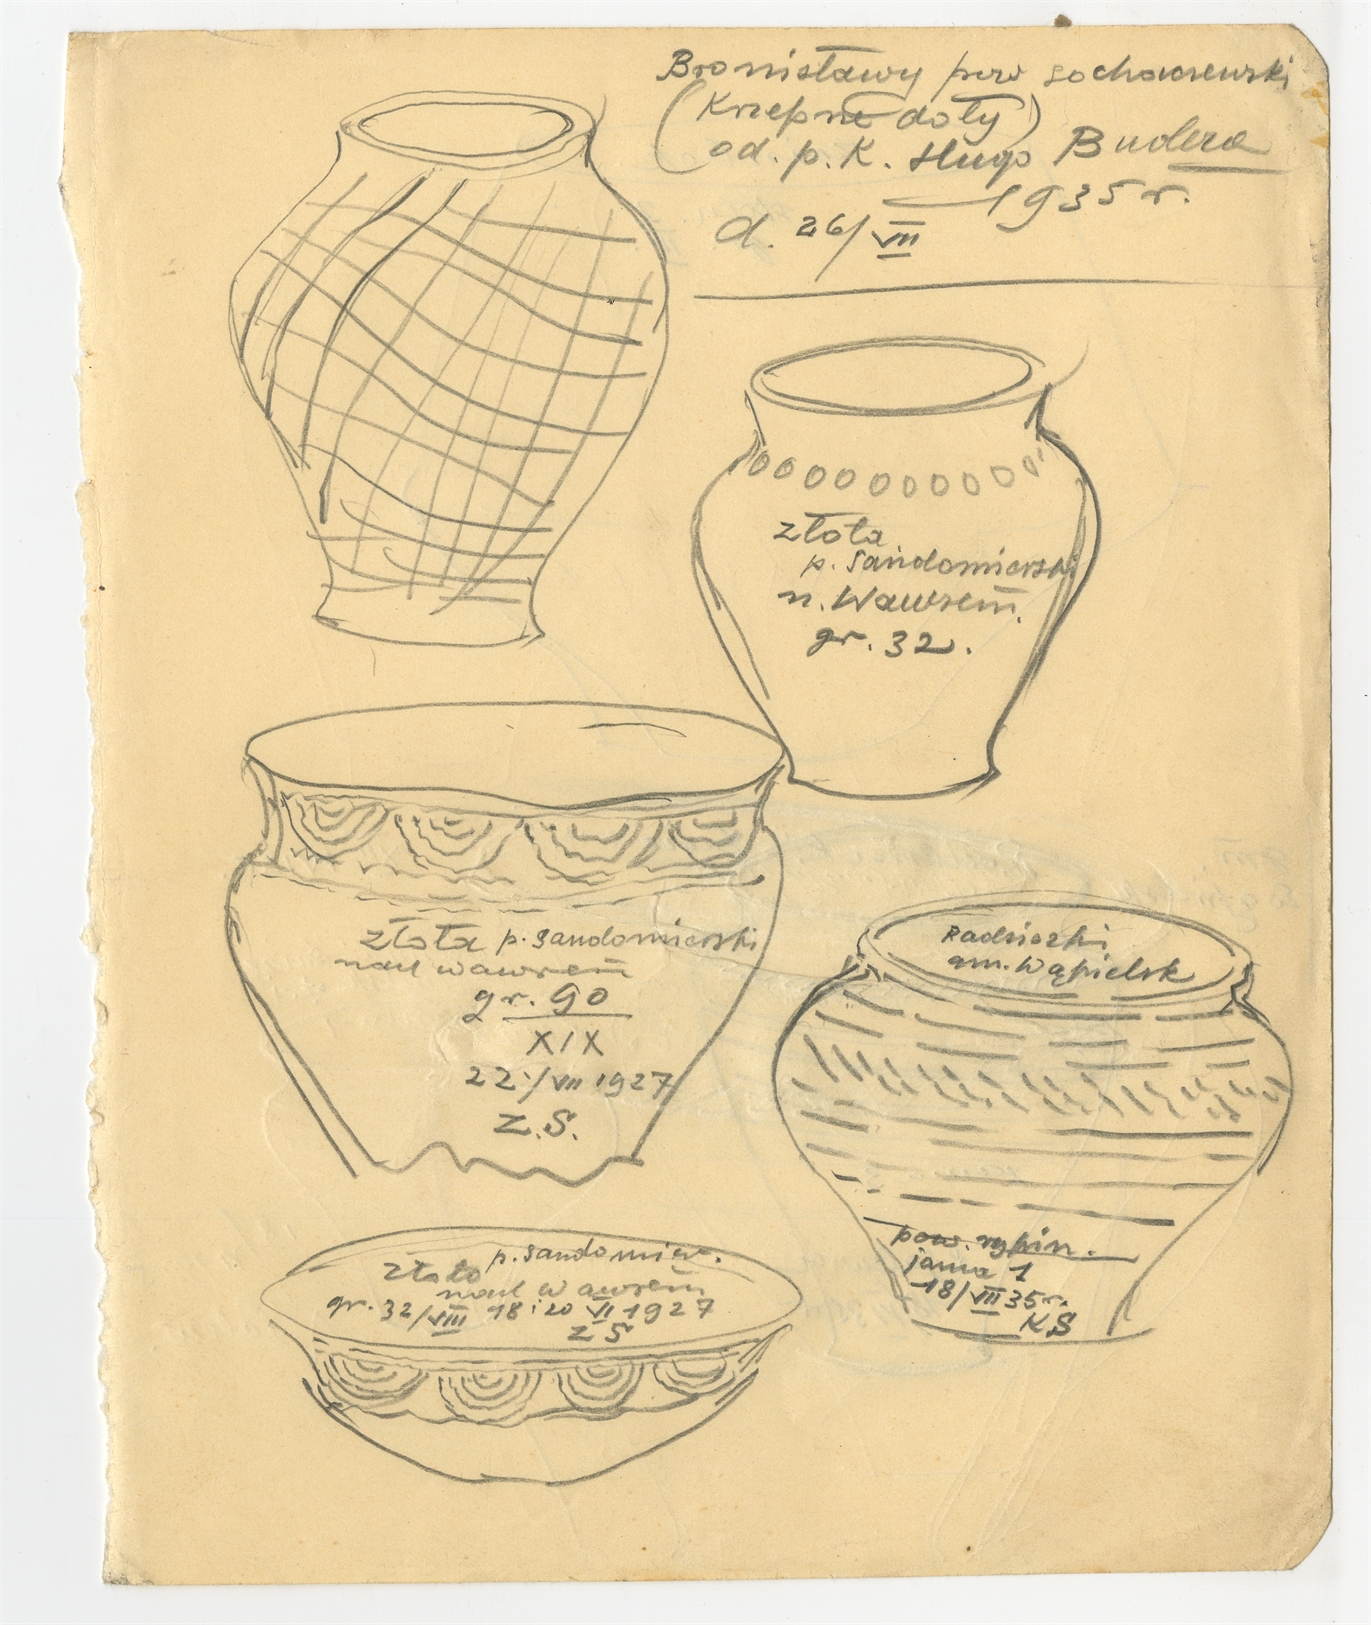 Bronisławy pow sochaczewski
(Krzepne doły)
od. p. K. Hugo Budera
1935 r.
d. 26/VII
złota
p. Sandomierski
n. Wawrem.
gr. 32.
złota p. Sandomierski
nad wawrem
gr. 90
XIX
22/VII 1927
Z.S.
Radzieki
gm. Wąpielsk
pow. rypin.
jama 1
18/VII 35 r.
K S
p. Sandomier.
złota
nad wawrem
gr. 32/VIII 18 i 20 VI 1927
Z S